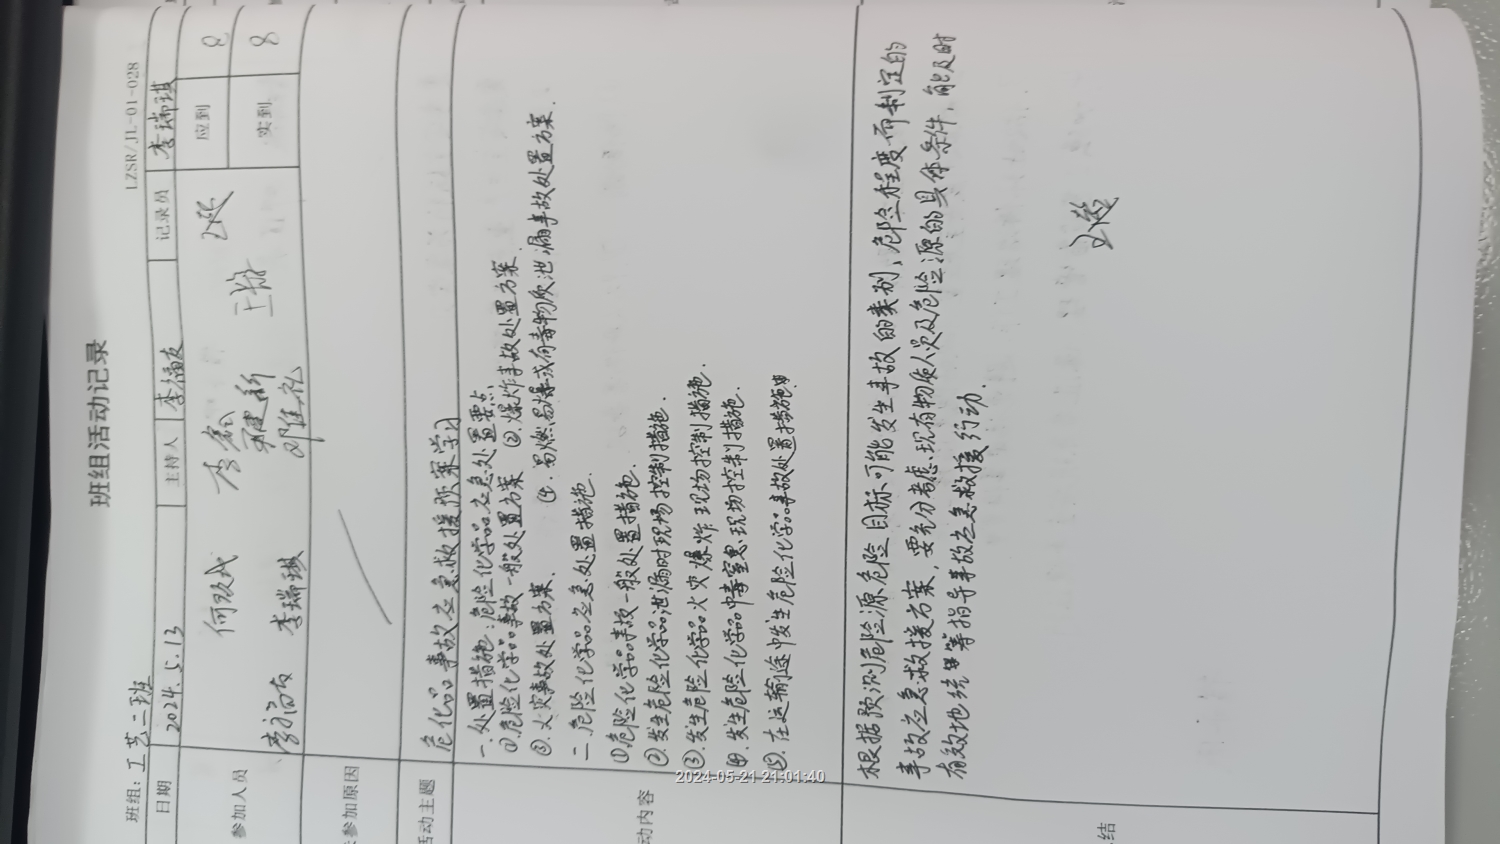 班组活动记录
LZSR/JL-01-028
班组：工艺二班
日期 2024.5.13 主持人 李福友 记录员 李瑞琪
参加人员 何改成 李鑫 应到 8
李福友 李瑞琪 实到 8
参加原因
活动主题 危化品事故应急救援预案学习
一.处置措施：危险化学品应急处置要点.
①.危险化学品事故一般处置方案 ②.爆炸事故处置方案
③.火灾事故处置方案. ④.易燃、易爆或有毒物质泄漏事故处置方案.
二.危险化学品应急处置措施.
①危险化学品事故一般处置措施.
动内容 ②.发生危险化学品泄漏时现场控制措施.
③.发生危险化学品火灾爆炸现场控制措施.
④.发生危险化学品中毒窒息现场控制措施.
⑤.在运输途中发生危险化学品事故处置措施
根据预测危险源危险目标可能发生事故的类别、危险程度而制定的
事故应急救援方案，要充分考虑现有物质人员及危险源的具体条件，能及时
有效地统筹指导事故应急救援行动.
结
2024-05-21 21:01:40